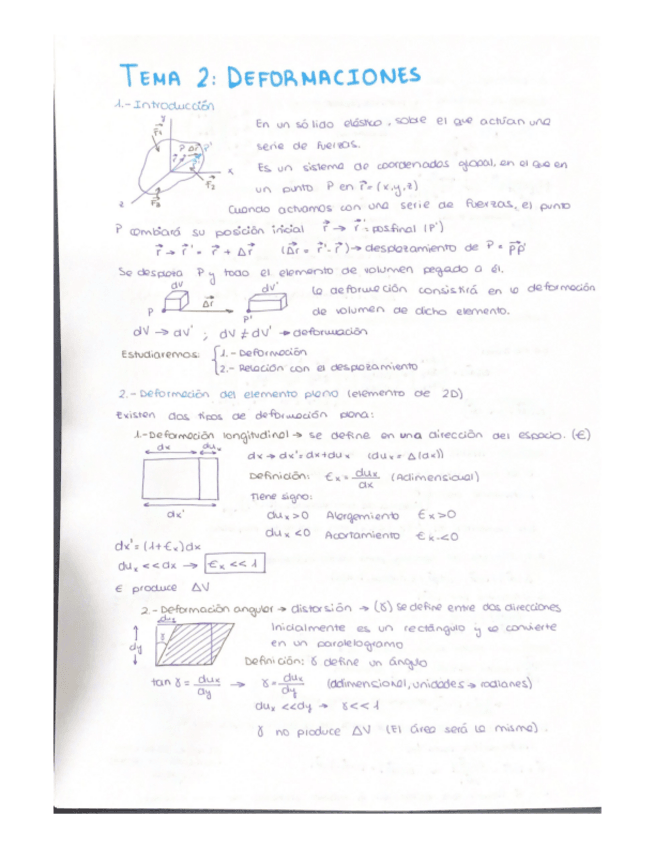 TEMA 2: DEFORMACIONES
1.- Introducción
y
F⃗₁
P Δr⃗ P'
r⃗
x
F⃗₂
F⃗₃
z
En un sólido elástico, sobre el que actúan una
serie de fuerzas.
Es un sistema de coordenadas global, en el que en
un punto P en r⃗ = (x,y,z)
Cuando actuamos con una serie de fuerzas, el punto
P cambiará su posición inicial r⃗ → r⃗' = pos final (P')
r⃗ → r⃗' = r⃗ + Δr⃗ (Δr⃗ = r⃗' - r⃗) → desplazamiento de P = PP'
Se desplaza P y todo el elemento de volumen pegado a él.
dV dV'
P Δr⃗ P'
La deformación consistirá en la deformación
de volumen de dicho elemento.
dV → dV' ; dV ≠ dV' → deformación
Estudiaremos: { 1.- Deformación
2.- Relación con el desplazamiento
2.- Deformación del elemento plano (elemento de 2D)
Existen dos tipos de deformación plana:
1.- Deformación longitudinal → se define en una dirección del espacio. (ε)
dx duₓ
dx'
dx → dx' = dx + duₓ (duₓ = Δ(dx))
Definición: εₓ = duₓ/dx (Adimensional)
Tiene signo:
duₓ > 0 Alargamiento εₓ > 0
duₓ < 0 Acortamiento εₓ < 0
dx' = (1 + εₓ) dx
duₓ << dx → εₓ << 1
ε produce ΔV
2.- Deformación angular → distorsión → (γ) se define entre dos direcciones
duₓ
γ
dy
Inicialmente es un rectángulo y se convierte
en un paralelogramo
Definición: γ define un ángulo
tan γ = duₓ/dy → γ = duₓ/dy (adimensional, unidades → radianes)
duₓ << dy → γ << 1
γ no produce ΔV (El área será la misma).